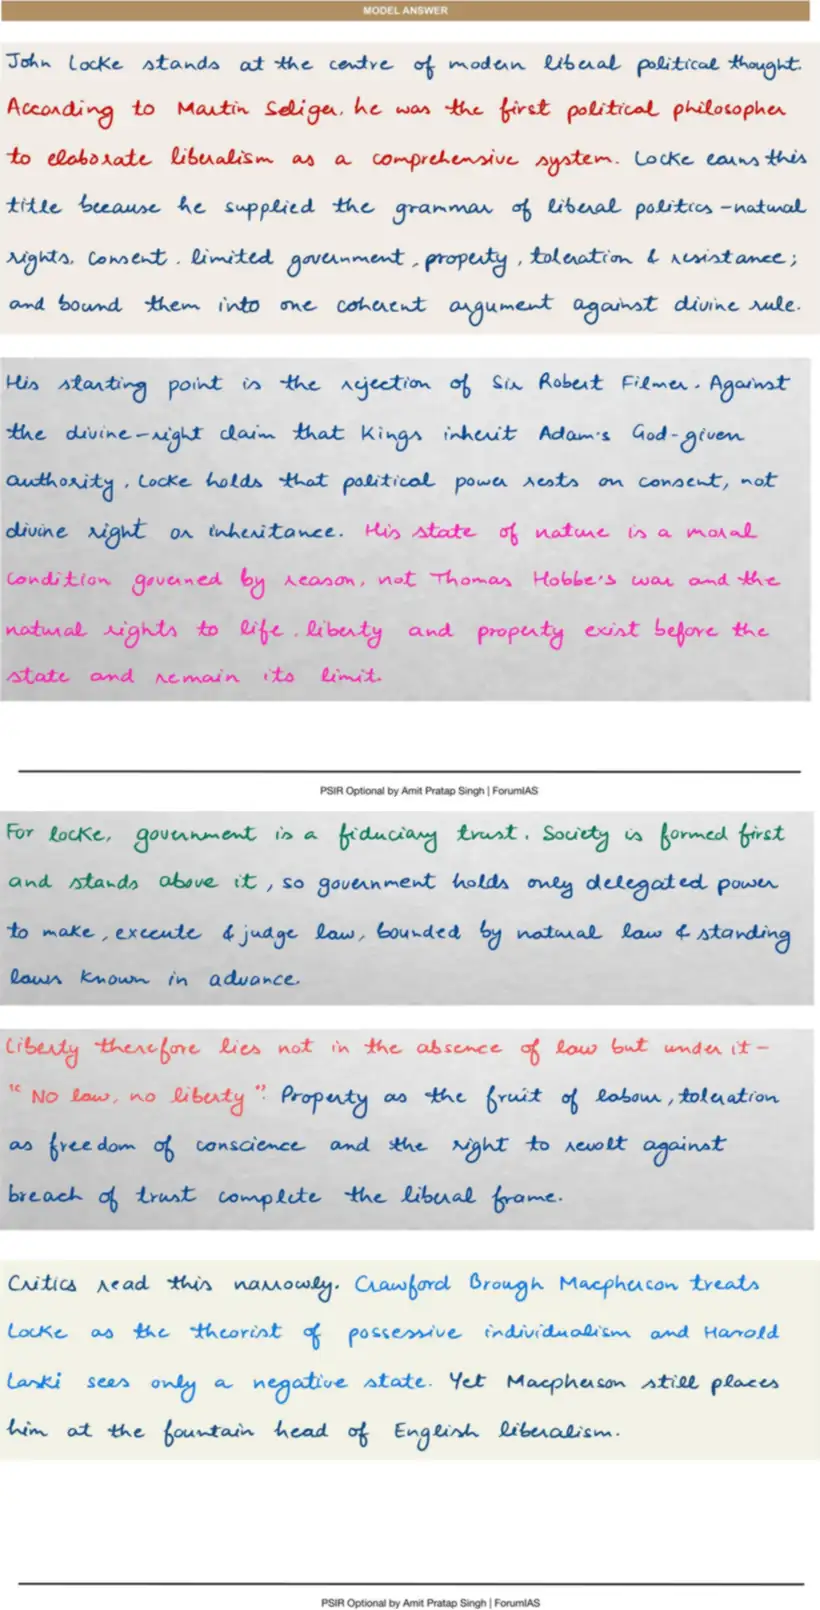 MODEL ANSWER
John Locke stands at the centre of modern liberal political thought.
According to Martin Seliger, he was the first political philosopher
to elaborate liberalism as a comprehensive system. Locke earns this
title because he supplied the grammar of liberal politics – natural
rights, consent, limited government, property, toleration & resistance;
and bound them into one coherent argument against divine rule.
His starting point is the rejection of Sir Robert Filmer. Against
the divine-right claim that Kings inherit Adam's God-given
authority, Locke holds that political power rests on consent, not
divine right or inheritance. His state of nature is a moral
condition governed by reason, not Thomas Hobbe's war and the
natural rights to life, liberty and property exist before the
state and remain its limit.
PSIR Optional by Amit Pratap Singh | ForumIAS
For Locke, government is a fiduciary trust. Society is formed first
and stands above it, so government holds only delegated power
to make, execute & judge law, bounded by natural law & standing
laws known in advance.
Liberty therefore lies not in the absence of law but under it –
"No law, no liberty". Property as the fruit of labour, toleration
as freedom of conscience and the right to revolt against
breach of trust complete the liberal frame.
Critics read this narrowly. Crawford Brough Macpherson treats
Locke as the theorist of possessive individualism and Harold
Laski sees only a negative state. Yet Macpherson still places
him at the fountain head of English liberalism.
PSIR Optional by Amit Pratap Singh | ForumIAS